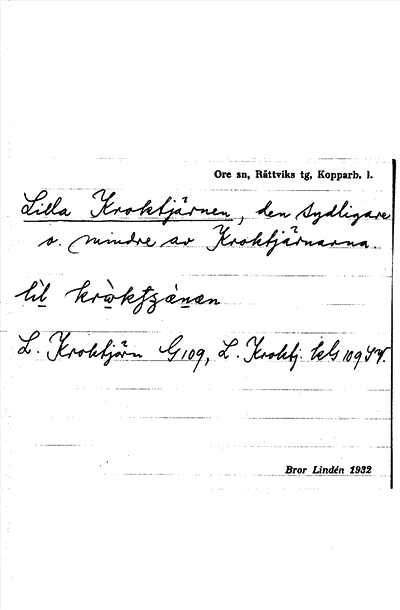 Ore sn, Rättviks tg, Kopparb. l.
Lilla Kroktjärnen, den sydligare
o. mindre av Kroktjärnarna.
L. Kroktjärn G 109, L. Kroktj. kls 109 SV.
Bror Lindén 1932